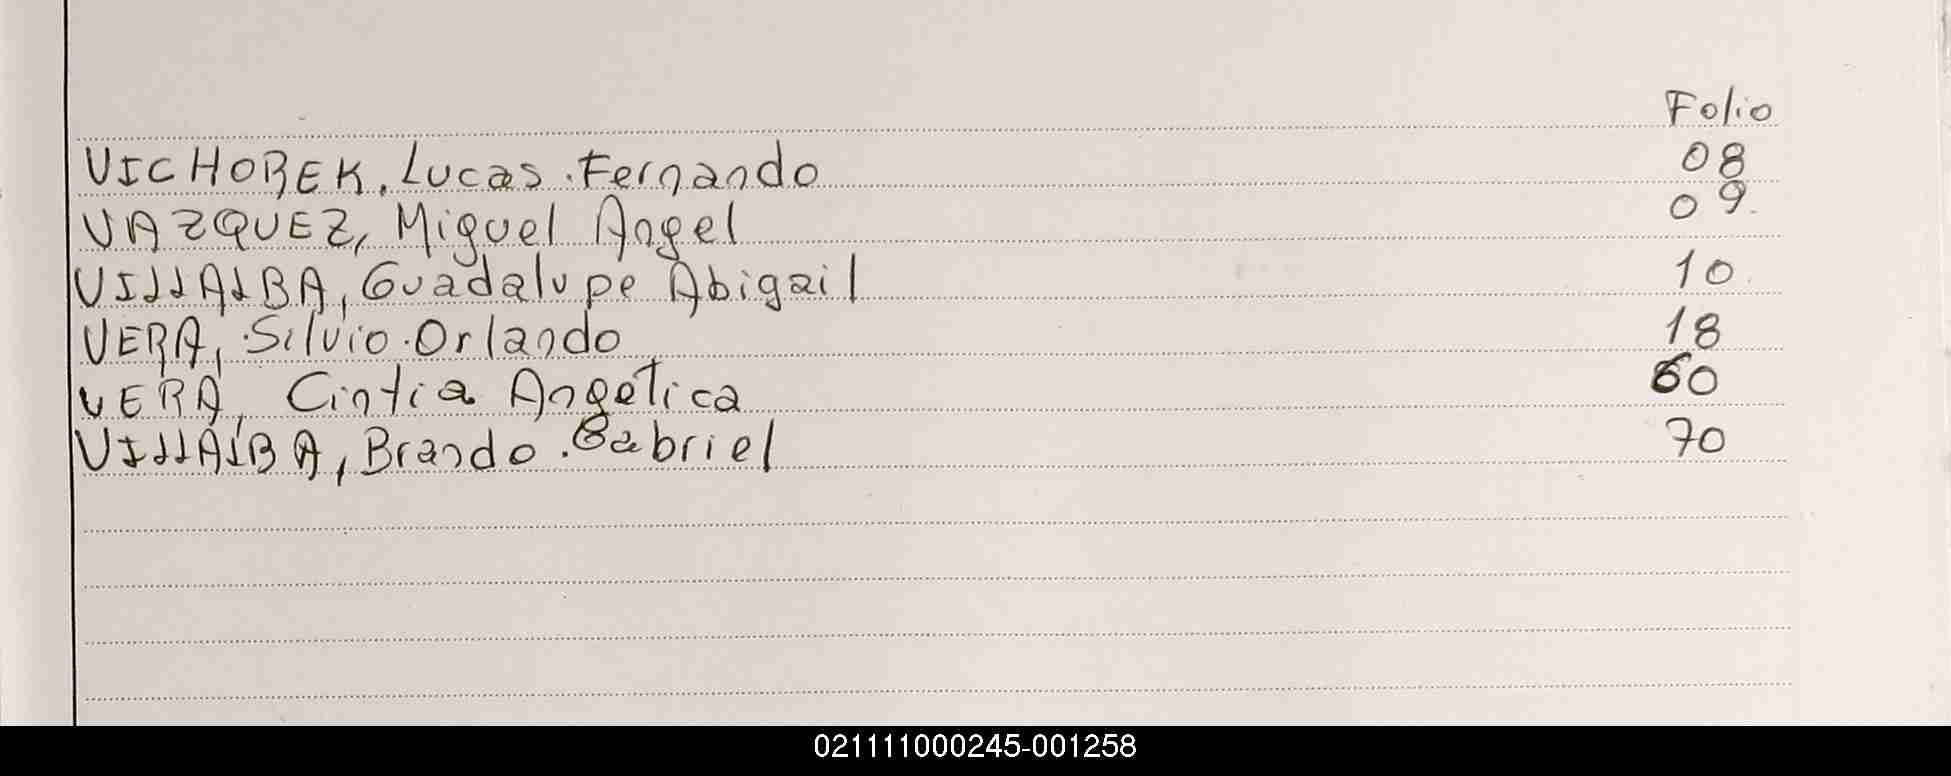 Folio
VICHOREK, Lucas Fernando 08
VAZQUEZ, Miguel Angel 09
VILLALBA, Guadalupe Abigail 10
VERA, Silvio Orlando 18
VERA, Cintia Angelica 60
VILLALBA, Brando Gabriel 70
021111000245-001258